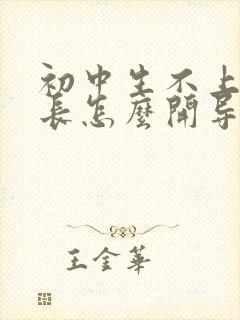 初中生不上
长怎麼開导
王金華